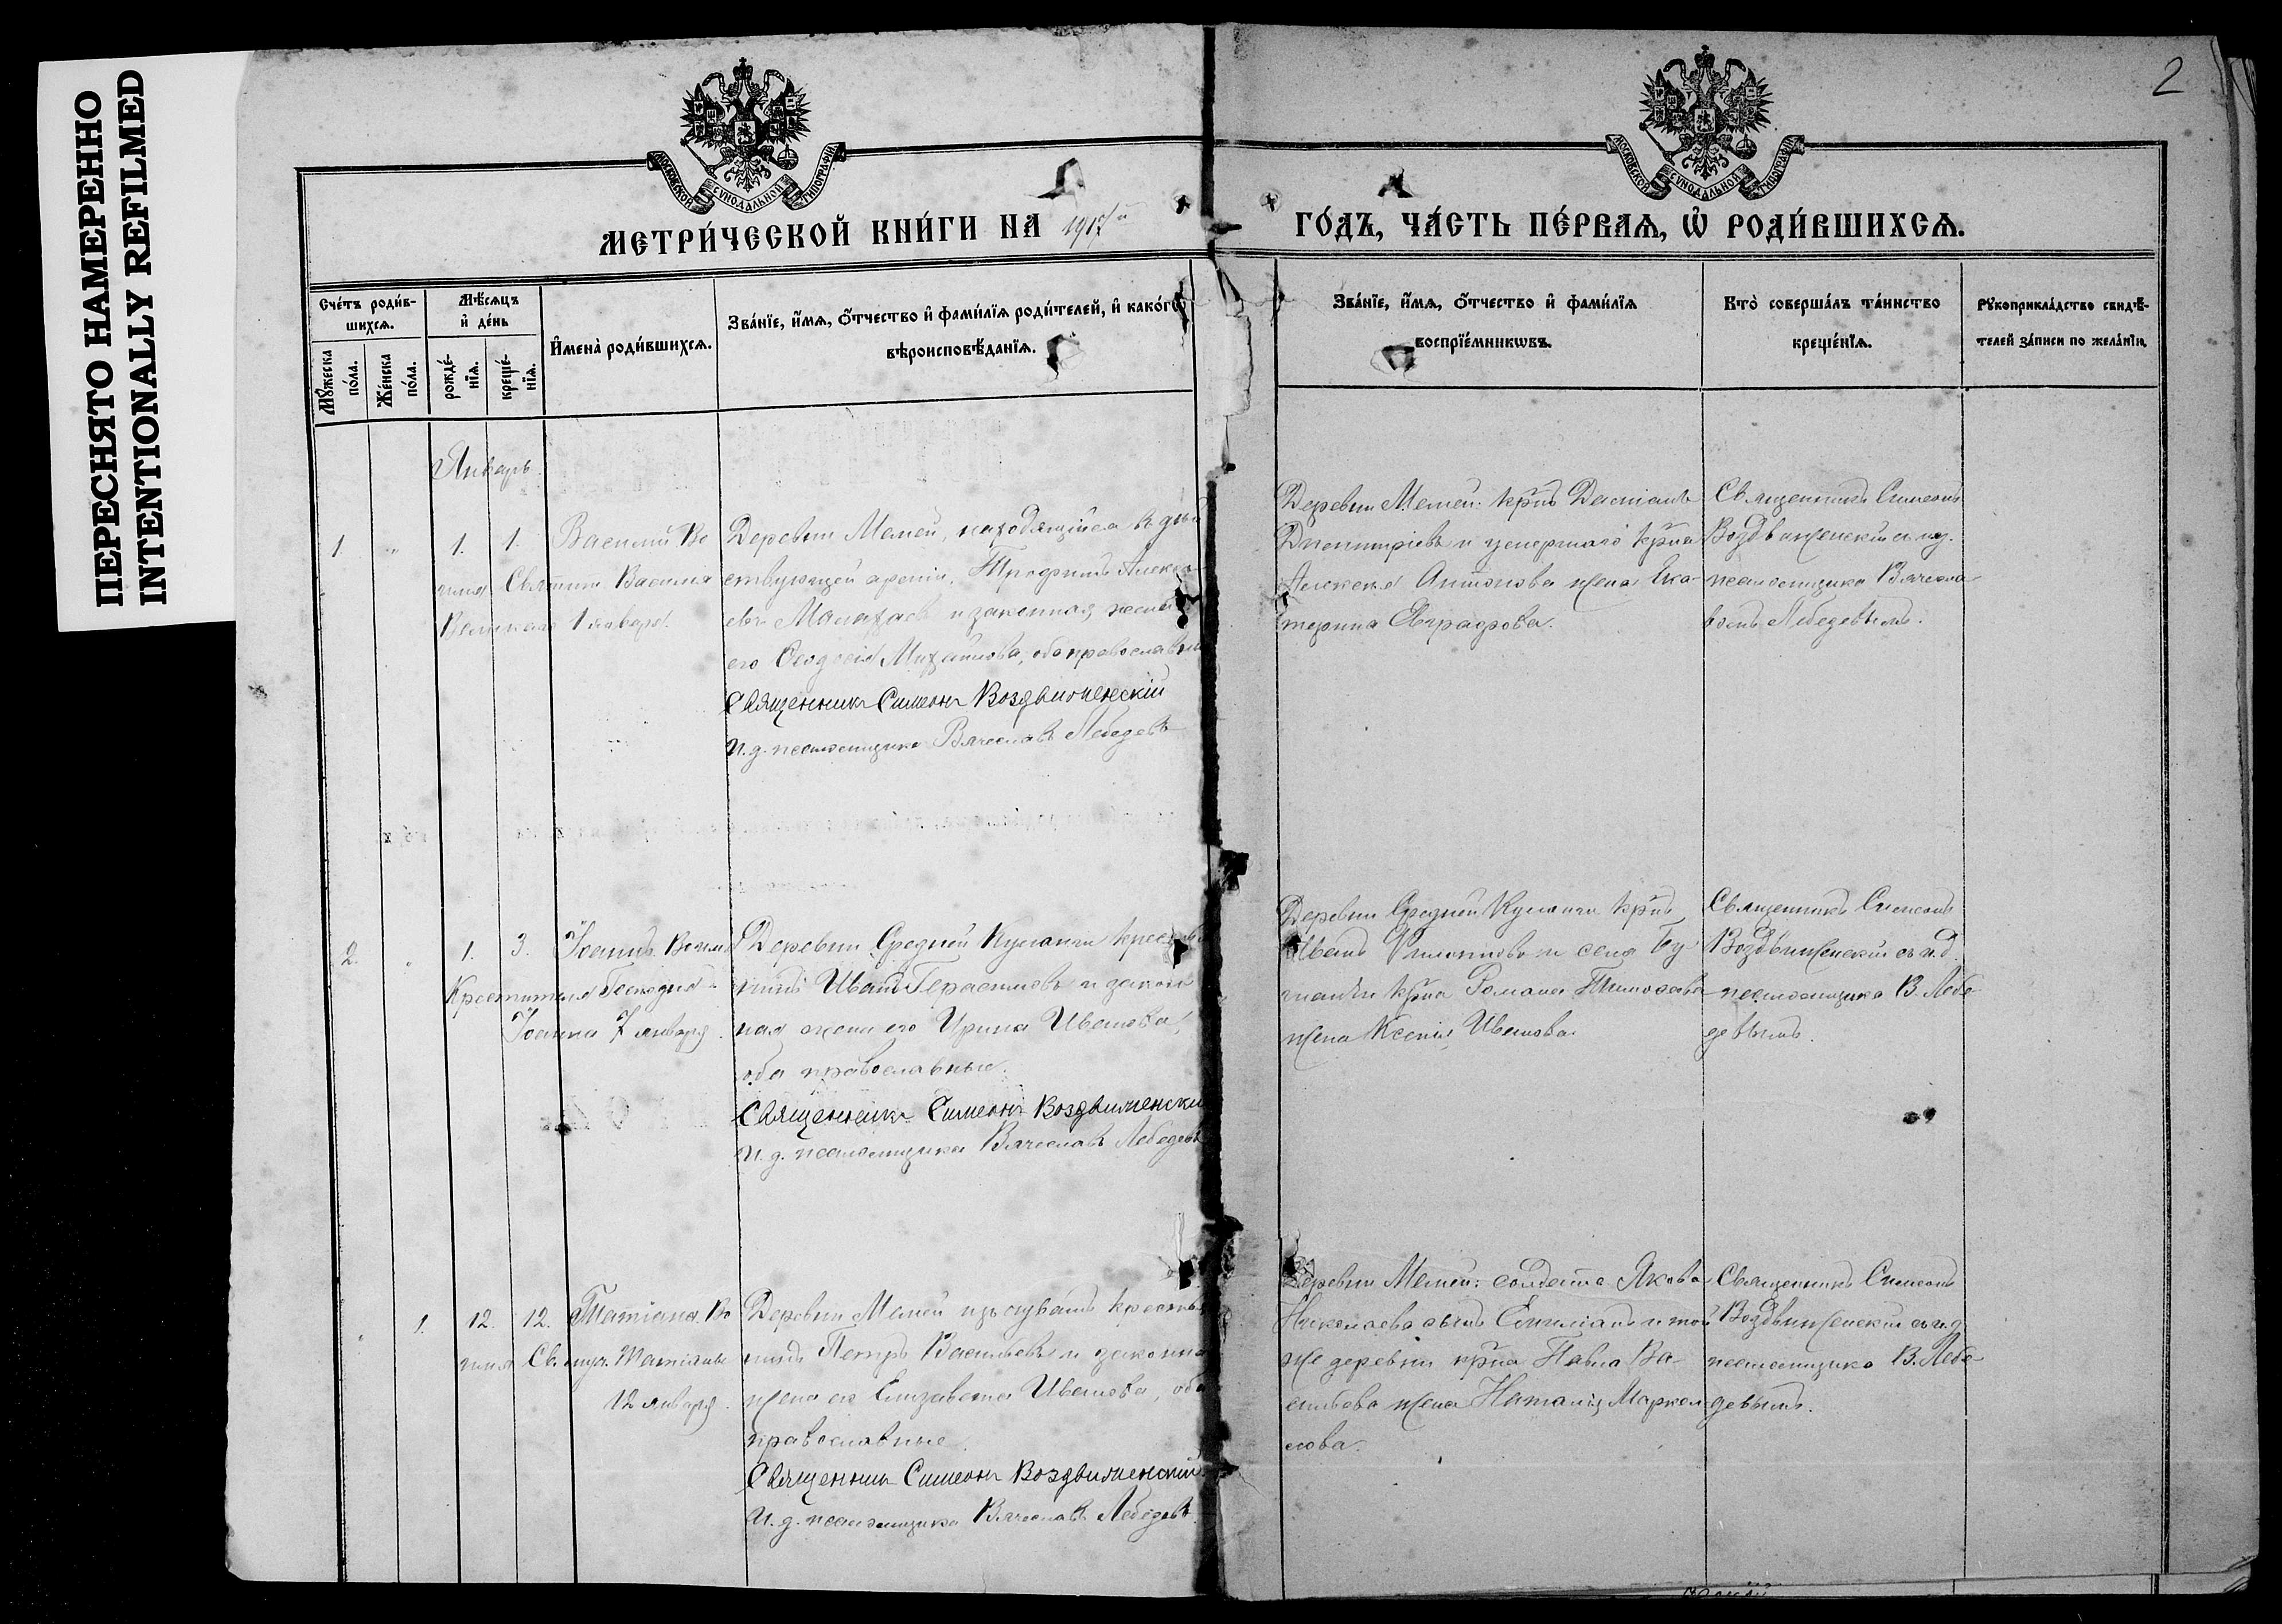 ПЕРЕСНЯТО НАМЕРЕННО
INTENTIONALLY REFILMED
2
МОСКОВСКОЙ СУНОДАЛЬНОЙ ТИПОГРАФІИ
МОСКОВСКОЙ СУНОДАЛЬНОЙ ТИПОГРАФІИ
МЕТРИ́ЧЕСКОЙ КНИ́ГИ НА 1917й
ГО́ДЪ, ЧА́СТЬ ПЕ́РВАѦ, Ѡ҆ РОДИ́ВШИХСѦ.
Сче́тъ роди́в-
шихсѧ.
Мꙋ́жеска по́ла.
Же́нска по́ла.
Мѣ́сѧцъ
и҆ де́нь
рожде́-
нїѧ.
креще́-
нїѧ.
И҆мена̀ роди́вшихсѧ.
Зва́нїе, и҆́мѧ, ѻ҆́тчество и҆ фами́лїѧ роди́телей, и҆ како́гѡ
вѣроисповѣ́данїѧ.
Зва́нїе, и҆́мѧ, ѻ҆́тчество и҆ фами́лїѧ
воспрїе́мникѡвъ.
Кто̀ соверша́лъ та́инство
креще́нїѧ.
Рꙋкоприкла́дство свидѣ́-
телей за́писи по жела́нїю.
Январь
1 " 1. 1. Василій Во
имя Святит Василія
Великаго 1 января.
Деревни Мемей, находящійся въ дѣй
ствующей арміи, Трофимъ Алексѣ
евъ и законная жена
его Ѳеодосія Михайлова, оба православн
Священникъ Симеонъ Воздвиженскій
И.д. псаломщика Вячеславъ Лебедевъ
Деревни Мемей: кр҃нъ
Дмитріевъ и умершаго кр҃на
Алексѣя Антонова жена Ека-
терина Евграфова.
Священникъ Симеонъ
Воздвиженскій съ и.д.
псаломщика Вячесла-
вомъ Лебедевымъ.
2. " 1. 3. Іоаннъ. Во имя
Крестителя Господня
Іоанна 7 января.
Деревни Средней Кушкети крестья
нинъ Иванъ Герасимовъ и закон
ная жена его Ирина Иванова,
оба православные.
Священникъ Симеонъ Воздвиженскій
И.д. псаломщика Вячеславъ Лебедевъ
Деревни Средней кр҃нъ
Иванъ Филипповъ и села
кр҃на Романа Тимоѳеева
жена Ксенія Иванова.
Священникъ Симеонъ
Воздвиженскій съ и.д.
псаломщика В. Лебе-
девымъ.
" 1. 12. 12. Татіана. Во
имя Св. муч. Татіаны
12 января.
Деревни Мемей крестья
нинъ Петръ Васильевъ и законная
жена его Елизавета Иванова, оба
православные
Священникъ Симеонъ Воздвиженскій
И.д. псаломщика Вячеславъ Лебедевъ.
Деревни Мемей: солдата Якова
Николаева сынъ Емиліанъ и той
же деревни кр҃на Павла Ва-
сильева жена Наталія Маркел-
лова.
Священникъ Симеонъ
Воздвиженскій съ и.д.
псаломщика В. Лебе-
девымъ.